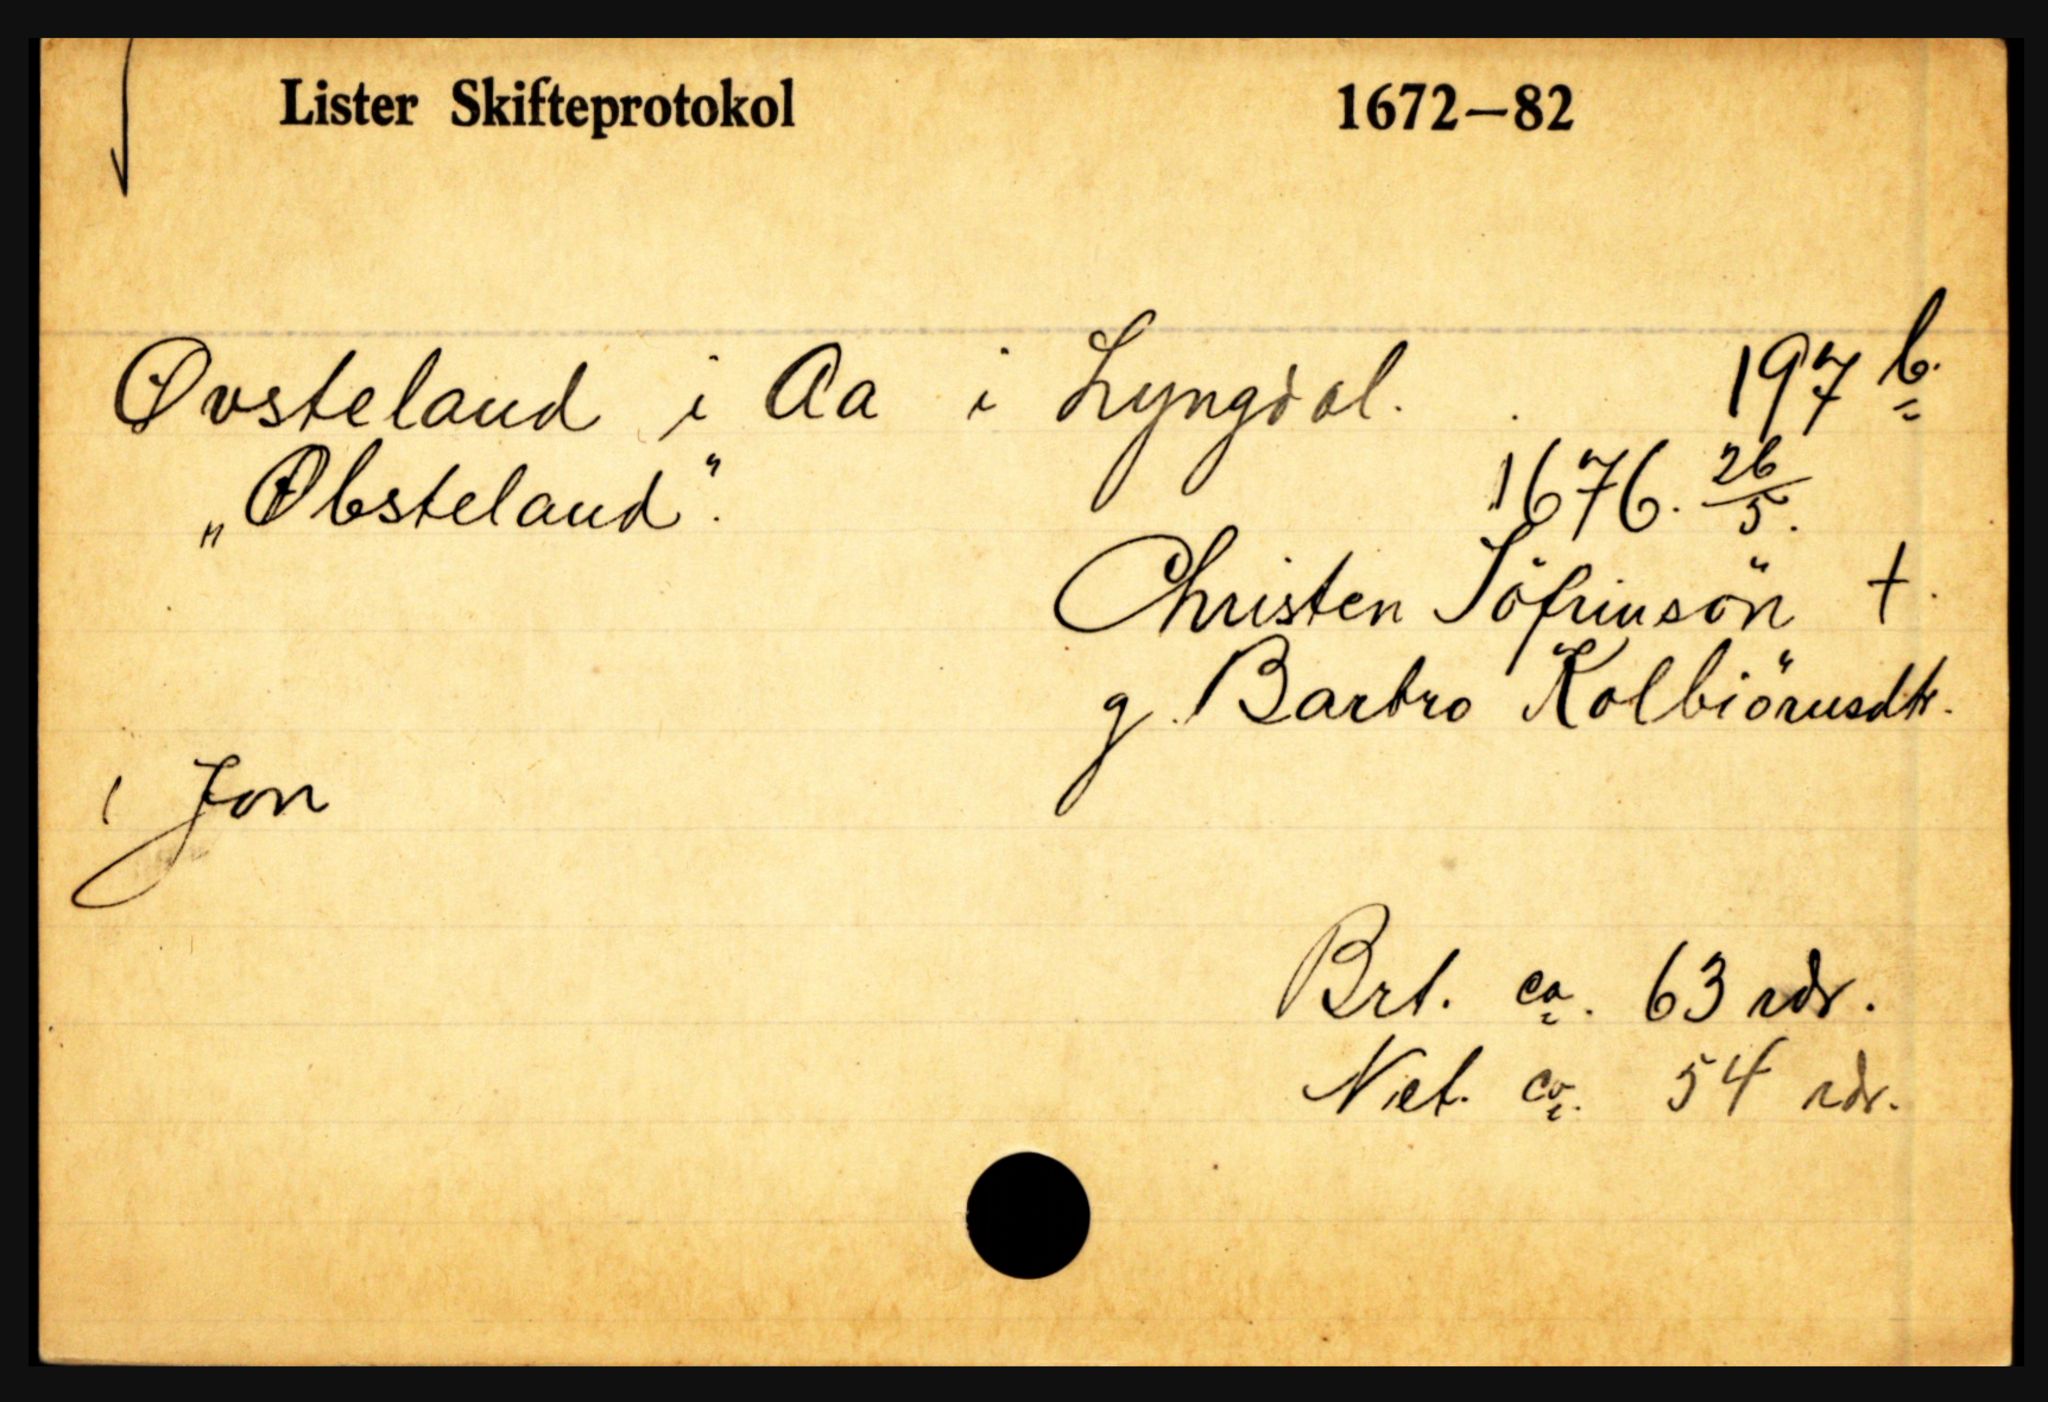 Lister Skifteprotokol 1672–82
Øvsteland i Aa i Lyngdal. 197 b.
„Øbsteland". 1676. 26/5.
Christen Töfrinsön †.
g. Barbro Kolbiörnsdtr.
1 Jon
Brt. ca. 63 rdr.
Net. ca. 54 rdr.